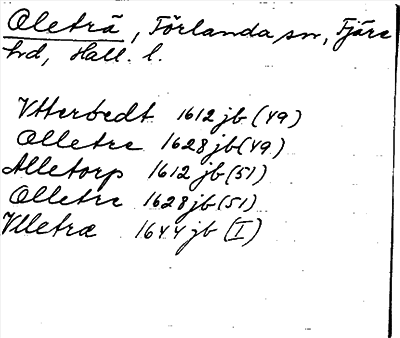 Oleträ, Förlanda sn, Fjäre
hd, Hall. l.
Vtterbedt 1612 jb (49)
Olletre 1628 jb (49)
Alletorp 1612 jb (51)
Olletre 1628 jb (51)
Vlletræ 1644 jb (I)